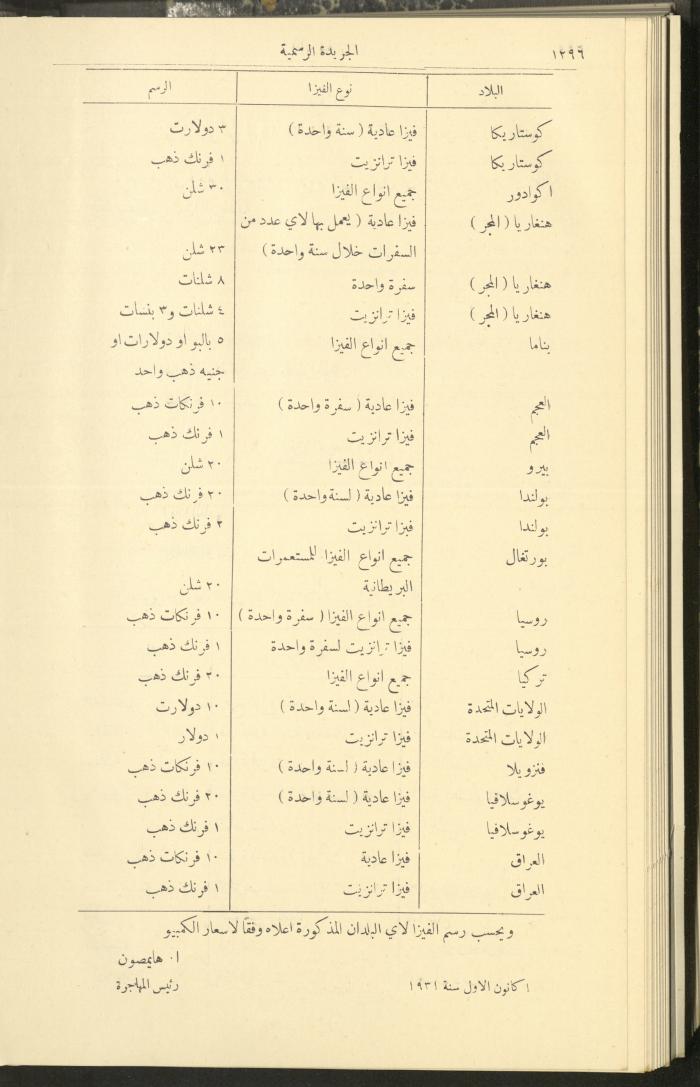 ١٢٩٦ الجريدة الرسمية
البلاد نوع الفيزا الرسم
كوستاريكا فيزا عادية ( سنة واحدة ) ٣ دولارت
كوستاريكا فيزا ترانزيت ١ فرنك ذهب
اكوادور جميع انواع الفيزا ٣٠ شلن
هنغاريا ( المجر ) فيزا عادية ( يعمل بها لاي عدد من
السفرات خلال سنة واحدة ) ٢٣ شلن
هنغاريا ( المجر ) سفرة واحدة ٨ شلنات
هنغاريا ( المجر ) فيزا ترانزيت ٤ شلنات و٣ بنسات
بناما جميع انواع الفيزا ٥ بالبو او دولارات او
جنيه ذهب واحد
العجم فيزا عادية ( سفرة واحدة ) ١٠ فرنكات ذهب
العجم فيزا ترانزيت ١ فرنك ذهب
بيرو جميع انواع الفيزا ٢٠ شلن
بولندا فيزا عادية ( لسنة واحدة ) ٢٠ فرنك ذهب
بولندا فيزا ترانزيت ٢ فرنك ذهب
بورتغال جميع انواع الفيزا للمستعمرات
البريطانية ٢٠ شلن
روسيا جميع انواع الفيزا ( سفرة واحدة ) ١٠ فرنكات ذهب
روسيا فيزا ترانزيت لسفرة واحدة ١ فرنك ذهب
تركيا جميع انواع الفيزا ٣٠ فرنك ذهب
الولايات المتحدة فيزا عادية ( لسنة واحدة ) ١٠ دولارت
الولايات المتحدة فيزا ترانزيت ١ دولار
فنزويلا فيزا عادية ( لسنة واحدة ) ١٠ فرنكات ذهب
يوغوسلافيا فيزا عادية ( لسنة واحدة ) ٢٠ فرنك ذهب
يوغوسلافيا فيزا ترانزيت ١ فرنك ذهب
العراق فيزا عادية ١٠ فرنكات ذهب
العراق فيزا ترانزيت ١ فرنك ذهب
ويحسب رسم الفيزا لاي البلدان المذكورة اعلاه وفقاً لاسعار الكمبيو
ا. هايمصون
١ كانون الاول سنة ١٩٣١ رئيس المهاجرة